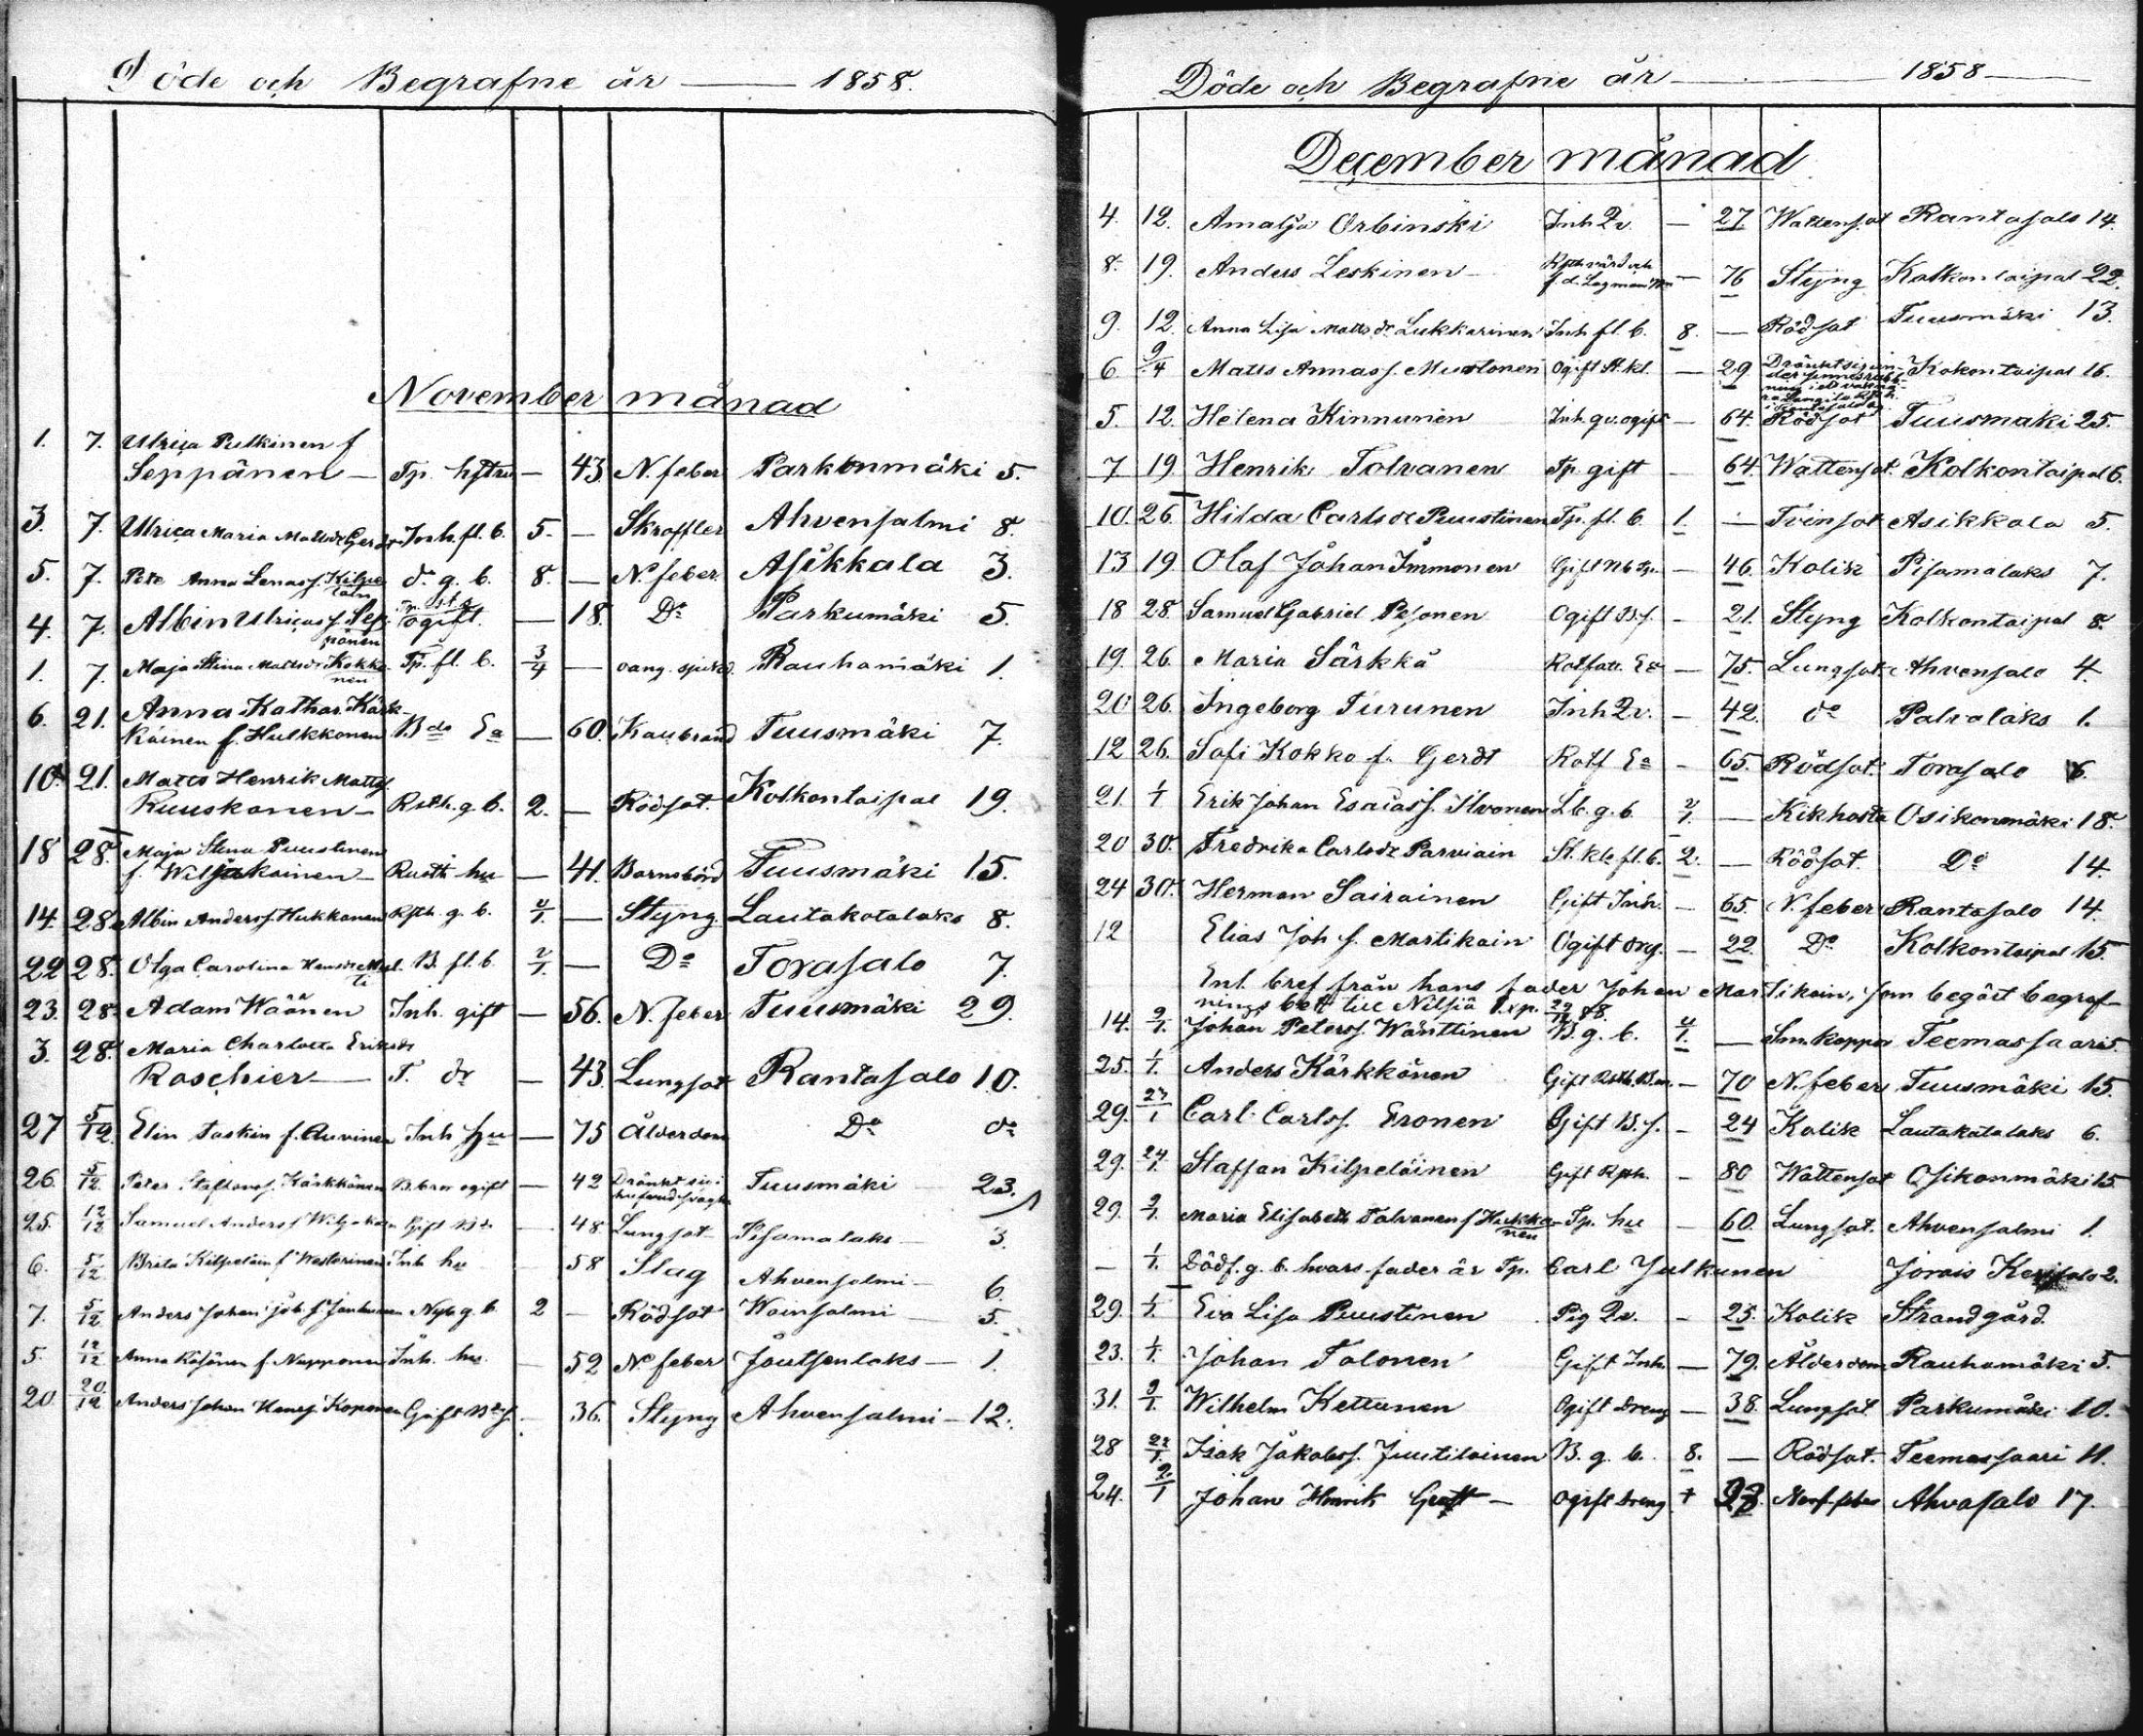 Döde och Begrafne år — 1858.
November månad
1. 7. Ulrica Pulkinen f
Seppänen — Tp. hstru — 43. N. feber Parkonmäki 5.
3. 7. Ulrica Maria Mattsdr Gerdt Inh. fl. b. 5. — Skroffler Ahvensalmi 8.
5. 7. Petr Anna Lenas s. Kilpe d:o g. b. 8. — N. feber Asikkala 3.
läin
4. 7. Albin Ulricas s. Sep ogift. — 18. D:o Parkumäki 5.
pänen
1. 7. Maja Stina Mattsdr Kokko Tp. fl. b. 3/4 — oang. sjukd. Rauhamäki 1.
nen
6. 21. Anna Kathar. Kärk-
käinen f. Hulkkonen B:de E:a — 60. Kallbrand Tuusmäki 7.
10. 21. Matts Henrik Matts s.
Ruuskanen — Rsth. g. b. 2. — Rödsot. Kolkontaipal 19.
18 28. Maja Stina Puustinen
f. Wiljakainen — Rusth. hu — 41. Barnsbörd Tuusmäki 15.
14. 28. Albin Anders s. Hukkanen Rsth. g. b. 4/1. — Styng Lautakotalaks 8.
22 28. Olga Carolina Hansdr B. fl. b. 2/1. — D:o Torasalo 7.
23. 28. Adam Wäänen Inh. gift — 56. N. feber Tuusmäki 29.
3. 28. Maria Charlotta Eriksdr
Roschier — T. dr — 43. Lungsot Rantasalo 10.
27 5/12. Elin Taskin f. Auvinen Inh hu — 75 Ålderdom D:o d:o
26. 5/12. Peter Staffans s. Kärkkänen B. bror ogift — 42 Dränkt sig i Tuusmäki — 23.
25. 12/12 Samuel Anders s Wiljakan Gift — 48. Lungsot Pisamalaks — 3.
6. 5/12 Brita Kilpeläin f Westerinen Inh hu — 58 Slag Ahvensalmi — 6.
7. 5/12 Anders Johan Joh. s. Jankunen Nyb g. b. 2 — Rödsot Woinsalmi — 5.
5. 12/12 Anna Käsänen f Nupponen Inh. hu. — 52 N. feber Joutsenlaks — 1.
20 20/12 Anders Johan Hans s. Koponen Gift B:s — 36. Styng Ahvensalmi — 12.
Döde och Begrafne år — 1858 —
December månad
4. 12. Amalja Orbinski Inh Qv. — 27 Wattensot Rantasalo 14.
8. 19. Anders Leskinen — Rsth värd och f. d. Lagman — 76 Styng Kolkontaipal 22.
9. 12. Anna Lisa Mattsdr Lukkarinen Inh fl. b. 8. — Rödsot Tuusmäki 13.
6. 9/4 Matts Annas s. Mustonen Ogift St. kl. — 29 Dränkt sig un- Kokontaipal 16.
der sinnesrubb-
5. 12. Helena Kinnunen Inh. qv. ogift — 64. Rödsot Tuusmäki 25.
7 19. Henrik Tolvanen Tp. gift — 64. Wattensot. Kolkontaipal 6.
10. 26. Hilda Carlsdr Puustinen Tp. fl. b. 1. — Tvinsot Asikkala 5.
13 19. Olaf Johan Immonen Gift Nb — 46. Kolik Pisamalaks 7.
18 28. Samuel Gabriel Pesonen Ogift B. s. — 21. Styng Kolkontaipal 8.
19. 26. Maria Särkkä Rotfatt. E:a — 75. Lungsot. Ahvensalo 4.
20 26. Ingeborg Turunen Inh Qv. — 42. d:o Palvalaks 1.
12 26. Sofi Kokko f. Gerdt Rotf E:a — 65. Rödsot. Torasalo 6.
21. 1/1 Erik Johan Esaias s. Ilvonen Lb. g. b. 2/1. — Kikhosta Osikonmäki 18.
20 30. Fredrika Carlsdr Parviain St. kls fl. b. 2. — Rödsot D:o 14.
24 30. Herman Sairainen Gift Inh. — 65. N. feber Rantasalo 14.
12 Elias Joh s. Martikain Ogift drg. — 22. D:o Kolkontaipal 15.
Enl. bref från hans fader Johan Martikain, som begärt begraf-
nings till Nilsiä Exp. 29/12 58.
14. 9/1. Johan Peters s. Wänttinen B. g. b. 4/1. — Sm. koppor Teemassaari 5.
25. 1/1. Anders Kärkkänen Gift Rsth. — 70 N. feber Tuusmäki 15.
29. 23/1 Carl Carls s. Eronen Gift B. s. — 24 Kolik Lautakatalaks 6.
29. 24/1. Staffan Kilpeläinen Gift Rsth. — 80 Wattensot Osikonmäki 15.
29. 2/1. Maria Elisabeth Tolvanen f Hukka- Tp. hu — 60. Lungsot. Ahvensalmi 1.
nen
— 1/1. Dödf. g. b. hvars fader är Tp. Carl Julkunen Jorois Kerisalo 2.
29. 1/1. Eva Lisa Puustinen Pig Qv. — 25. Kolik Strandgård
23. 1/1. Johan Tolonen Gift Inh. — 79. Ålderdom Rauhamäki 5.
31. 9/1. Wilhelm Kettunen Ogift dreng — 38. Lungsot Parkumäki 10.
28 23/1. Isak Jakobs s. Juutilainen B. g. b. 8. — Rödsot. Teemassaari 11.
24. 2/1 Johan Henrik — ogift dreng + 28. Nerf. feber Ahvasalo 17.